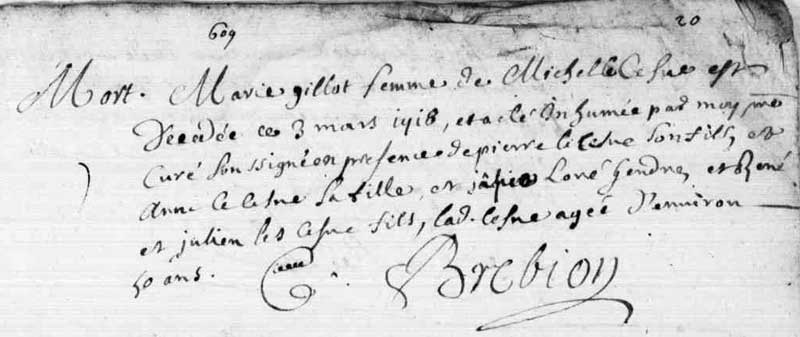 609 20
Mort. Marie gillot femme de Michel le Cesne est
Decedée ce 3 mars 1718, et a eté Inhumée par moy
Curé soussigné en presence de pierre le Cesne son fils, et
Anne le Cesne sa fille, et Loré gendre, et René
et julien les Cesne fils, lad. Cesne agée D'environ
50 ans. Brebion